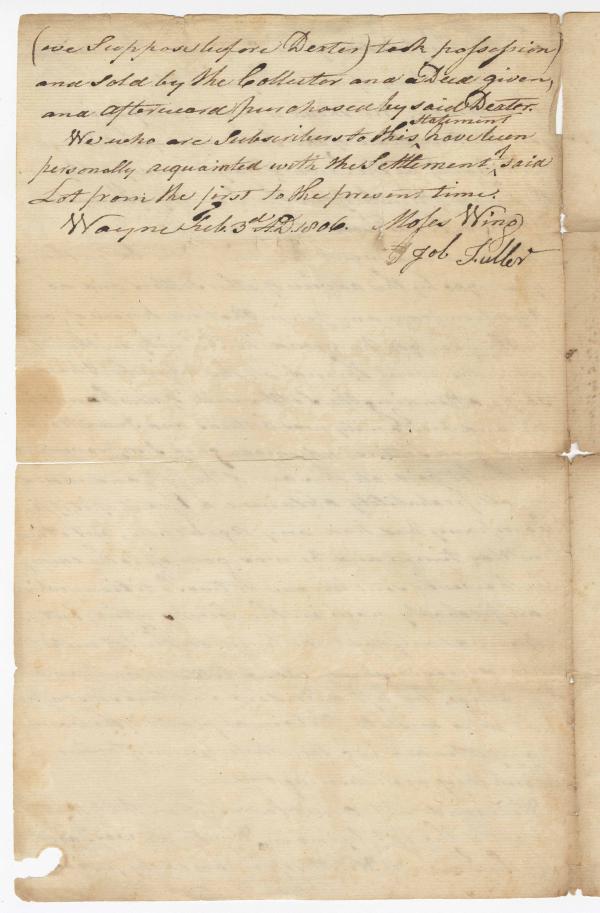 (we Suppose before Dexter) took possession)
and sold by the Collector and a Deed given,
and afterward purchased by said Dexter.
We who are Subscribers to this Statement have been
personally acquainted with the Settlement of said
Lot from the first to the present time.
Wayne Feb. 3d A.D. 1806. Moses Wing
Job Fuller